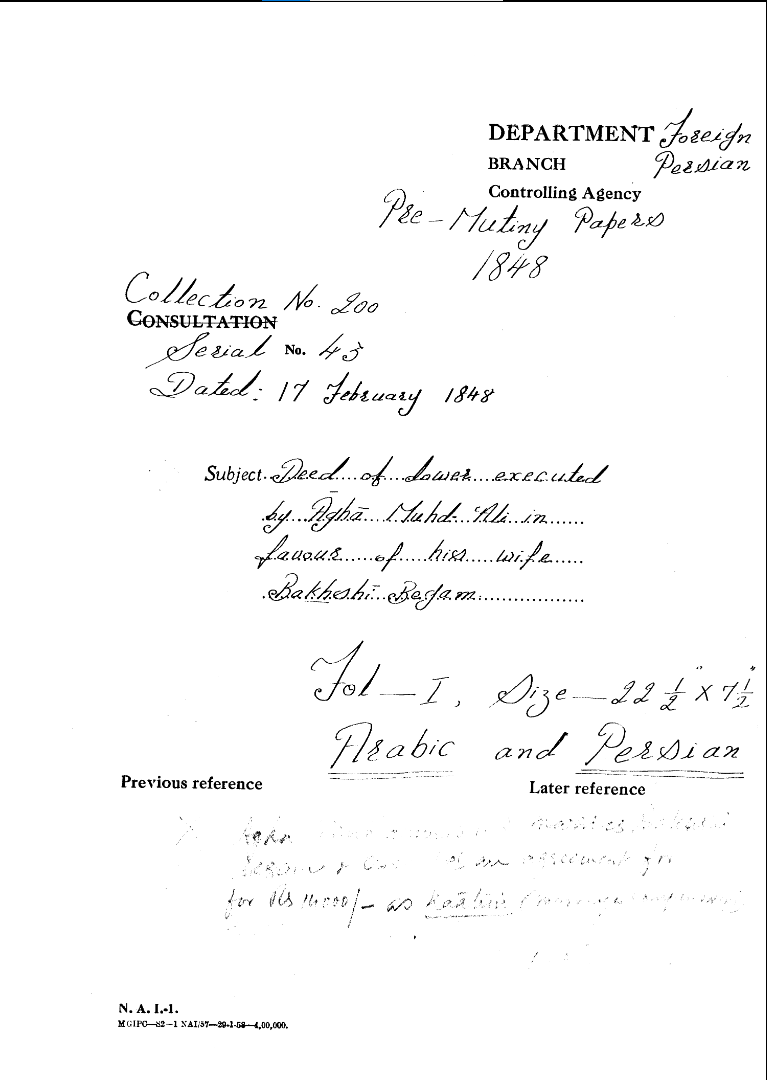 DEPARTMENT Foreign
BRANCH Persian
Controlling Agency
Pre-Mutiny Papers
1848
Collection No. 200
CONSULTATION
Serial No. 43
Dated: 17 February 1848
Subject. Deed of dower executed
by Āghā Muhd. Ali in
favour of hiss wife
Bakheshi Begam.
Fol — I, Size — 22 ½" × 7 ½"
Arabic and Persian
Previous reference
Later reference
agreement for
for Rs 14000/- as
N. A. I.-1.
MGIPC—S2—1 NAI/57—29-1-58—4,00,000.